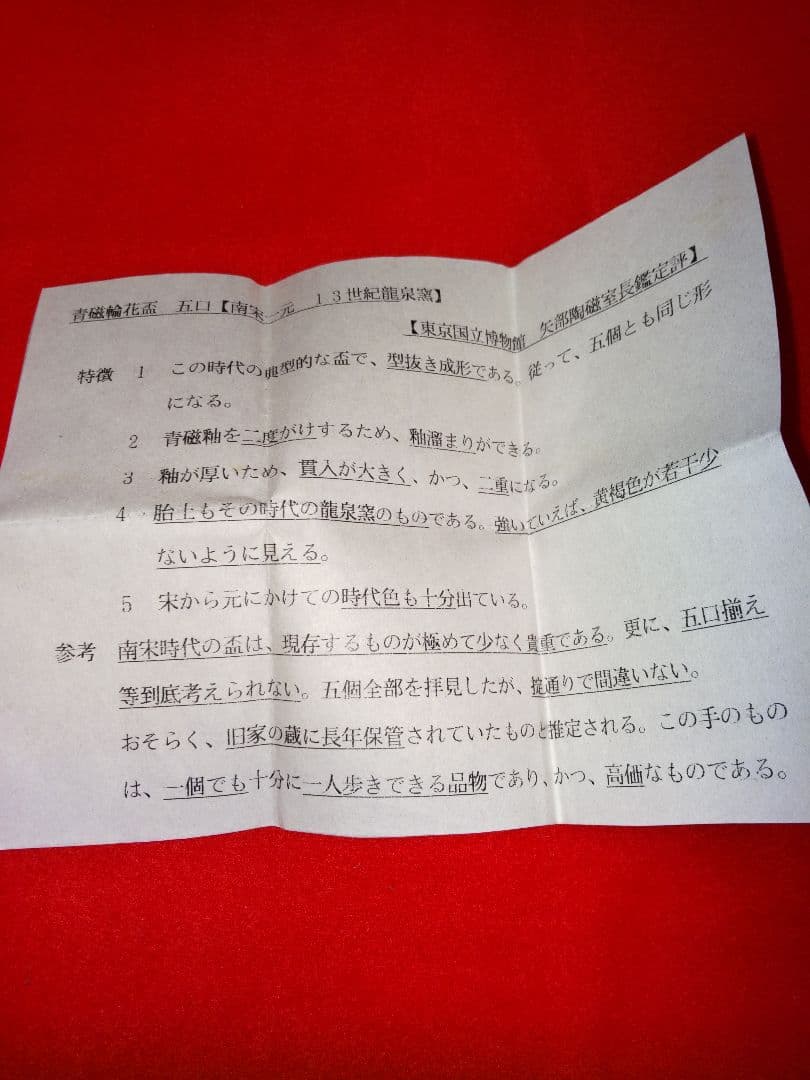 青磁輪花盃　五口【南宋―元　13世紀龍泉窯】
【東京国立博物館　矢部陶磁室長鑑定評】
特徴　1　この時代の典型的な盃で、型抜き成形である。従って、五個とも同じ形
になる。
2　青磁釉を二度がけするため、釉溜まりができる。
3　釉が厚いため、貫入が大きく、かつ、二重になる。
4　胎土もその時代の龍泉窯のものである。強いていえば、黄褐色が若干少
ないように見える。
5　宋から元にかけての時代色も十分出ている。
参考　南宋時代の盃は、現存するものが極めて少なく貴重である。更に、五口揃え
等到底考えられない。五個全部を拝見したが、掟通りで間違いない。
おそらく、旧家の蔵に長年保管されていたものと推定される。この手のもの
は、一個でも十分に一人歩きできる品物であり、かつ、高価なものである。